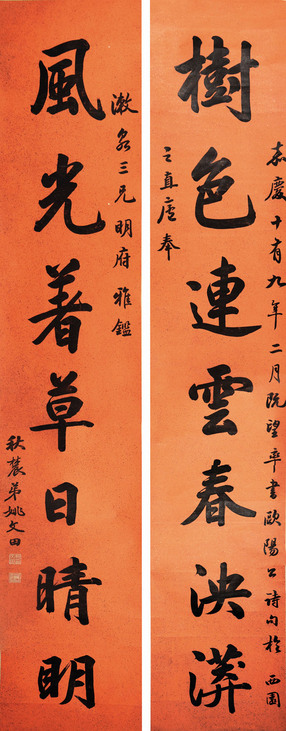 樹色連雲春泱漭
嘉慶十有九年二月既望率書歐陽公詩句於西園
之直廬奉
漱泉三兄明府雅鑑
風光著草日晴明
秋農弟姚文田